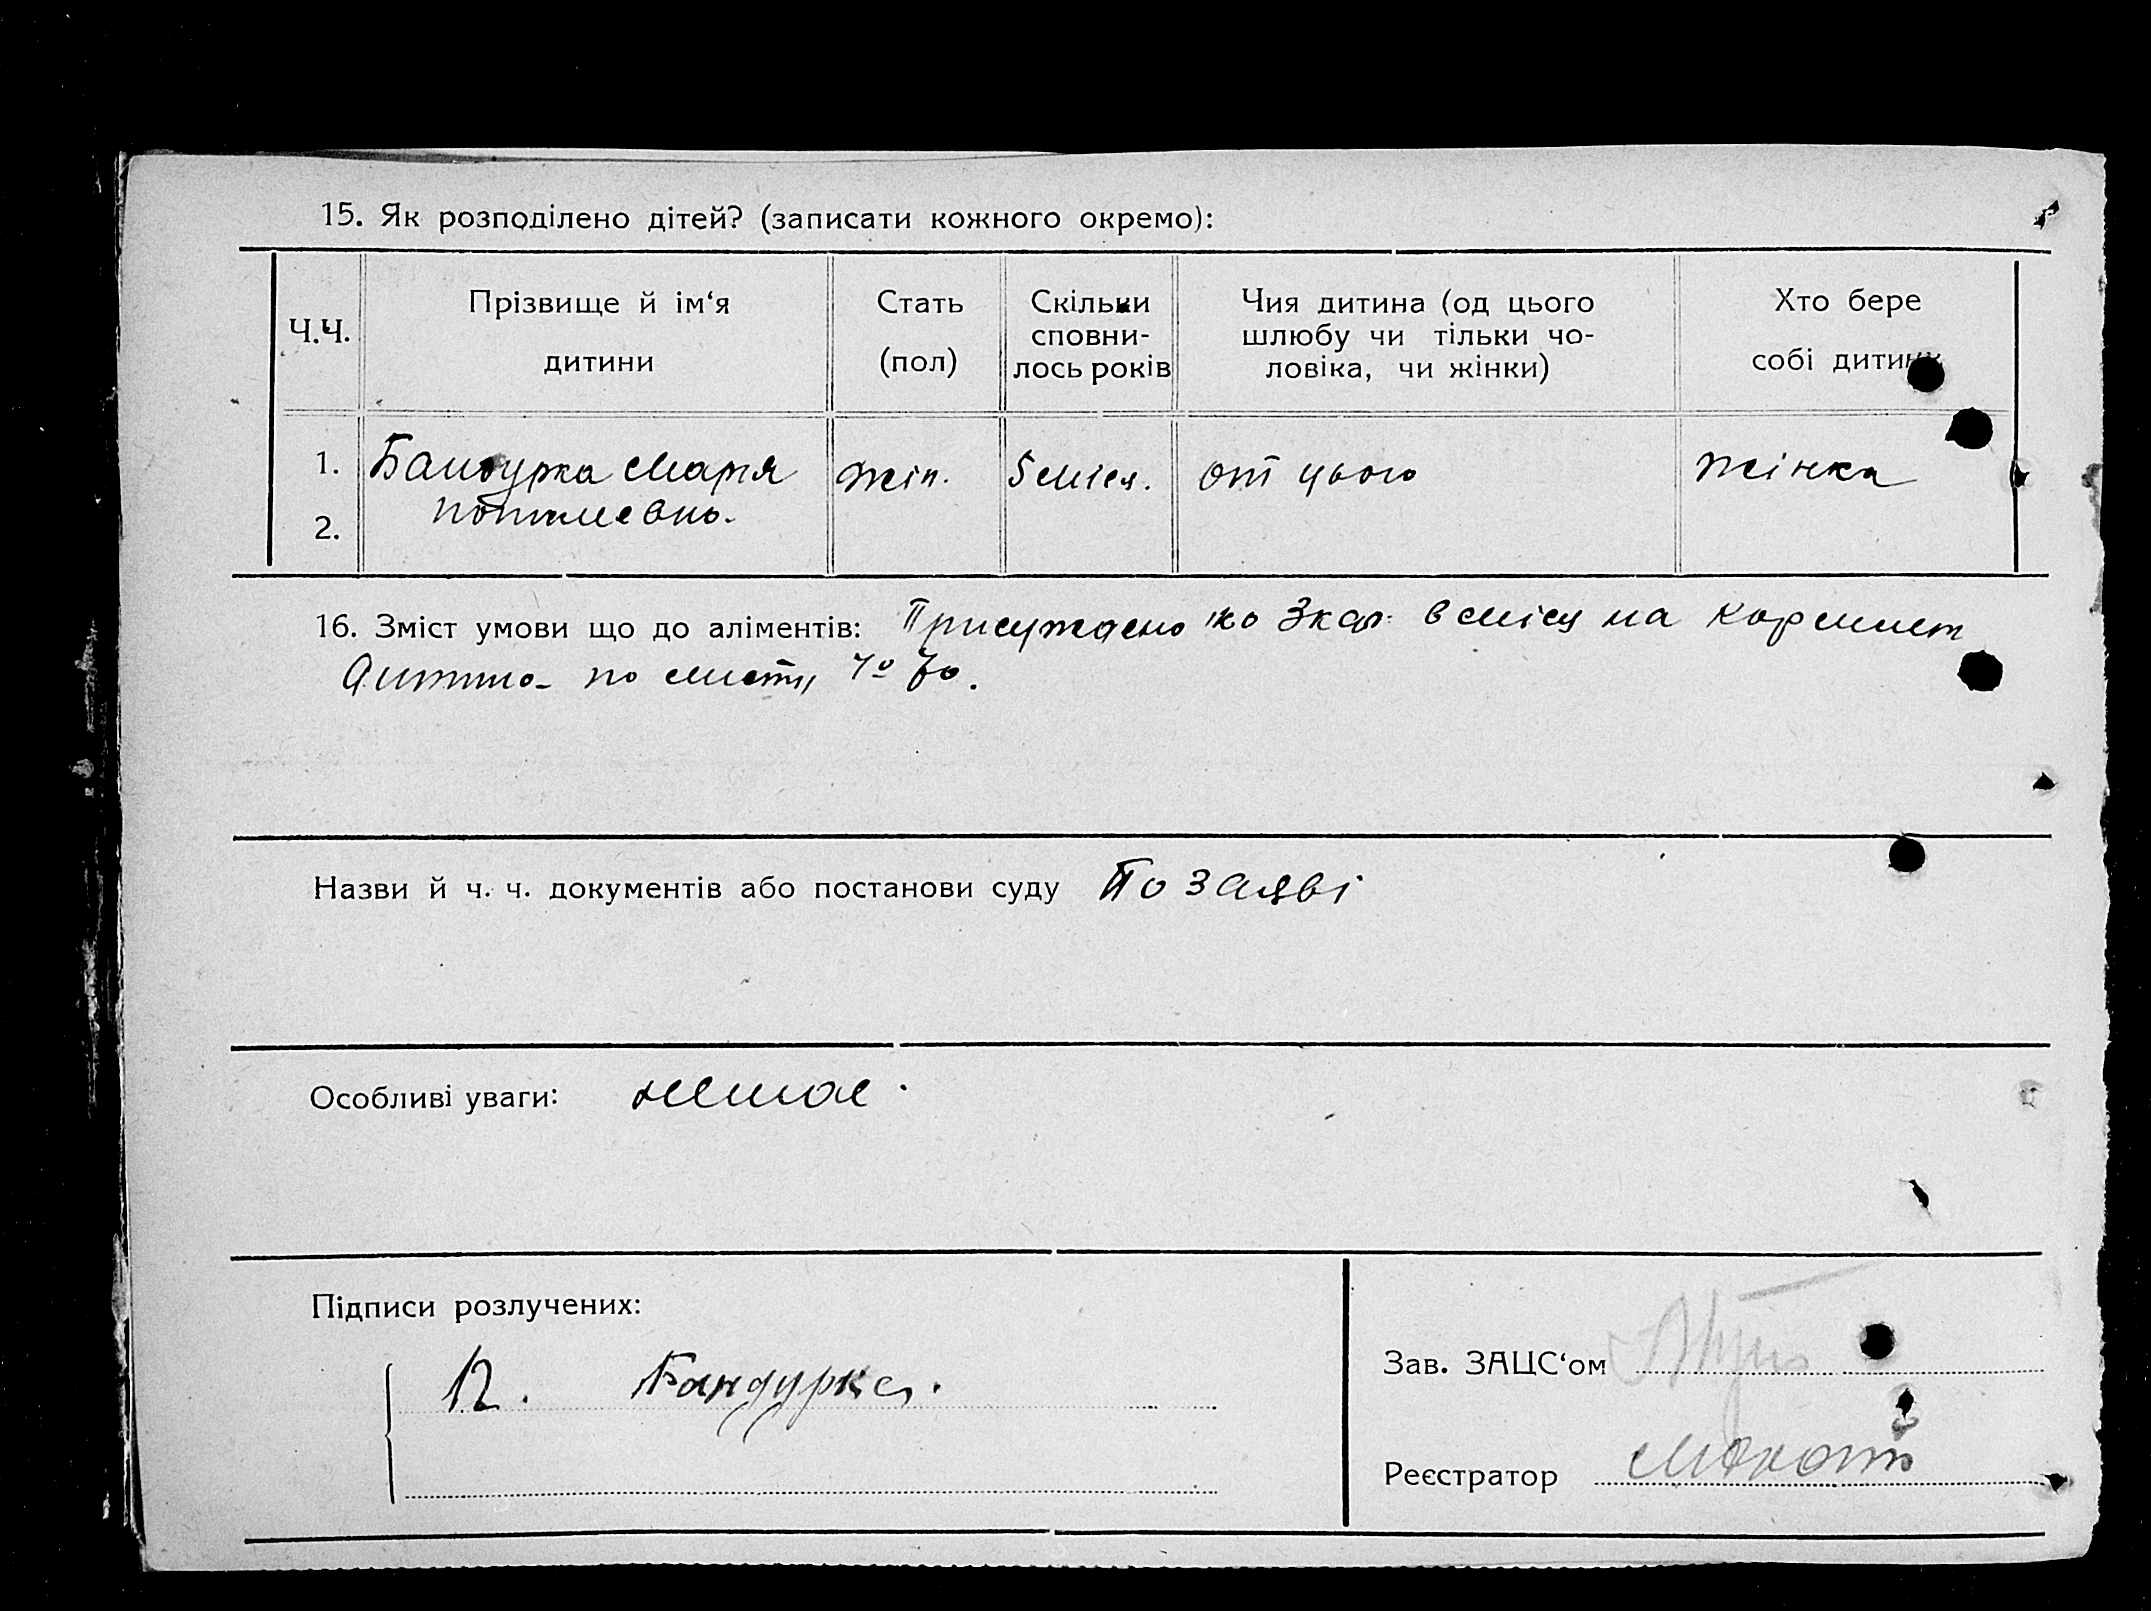 15. Як розподілено дітей? (записати кожного окремо):
Ч.Ч.
Прізвище й ім‘я
дитини
Стать
(пол)
Скільки
сповни-
лось років
Чия дитина (од цього
шлюбу чи тільки чо-
ловіка, чи жінки)
Хто бере
собі дитину
1. Бандурка Мария жін. 5 міся. от цього жінка
2.
16. Зміст умови що до аліментів: Присуждено по 3 кар. в місц на
по листу № 70.
Назви й ч. ч. документів або постанови суду По заяві
Особливі уваги: немає.
Підписи розлучених:
П. Бандурка.
Зав. ЗАЦС‘ом
Реєстратор